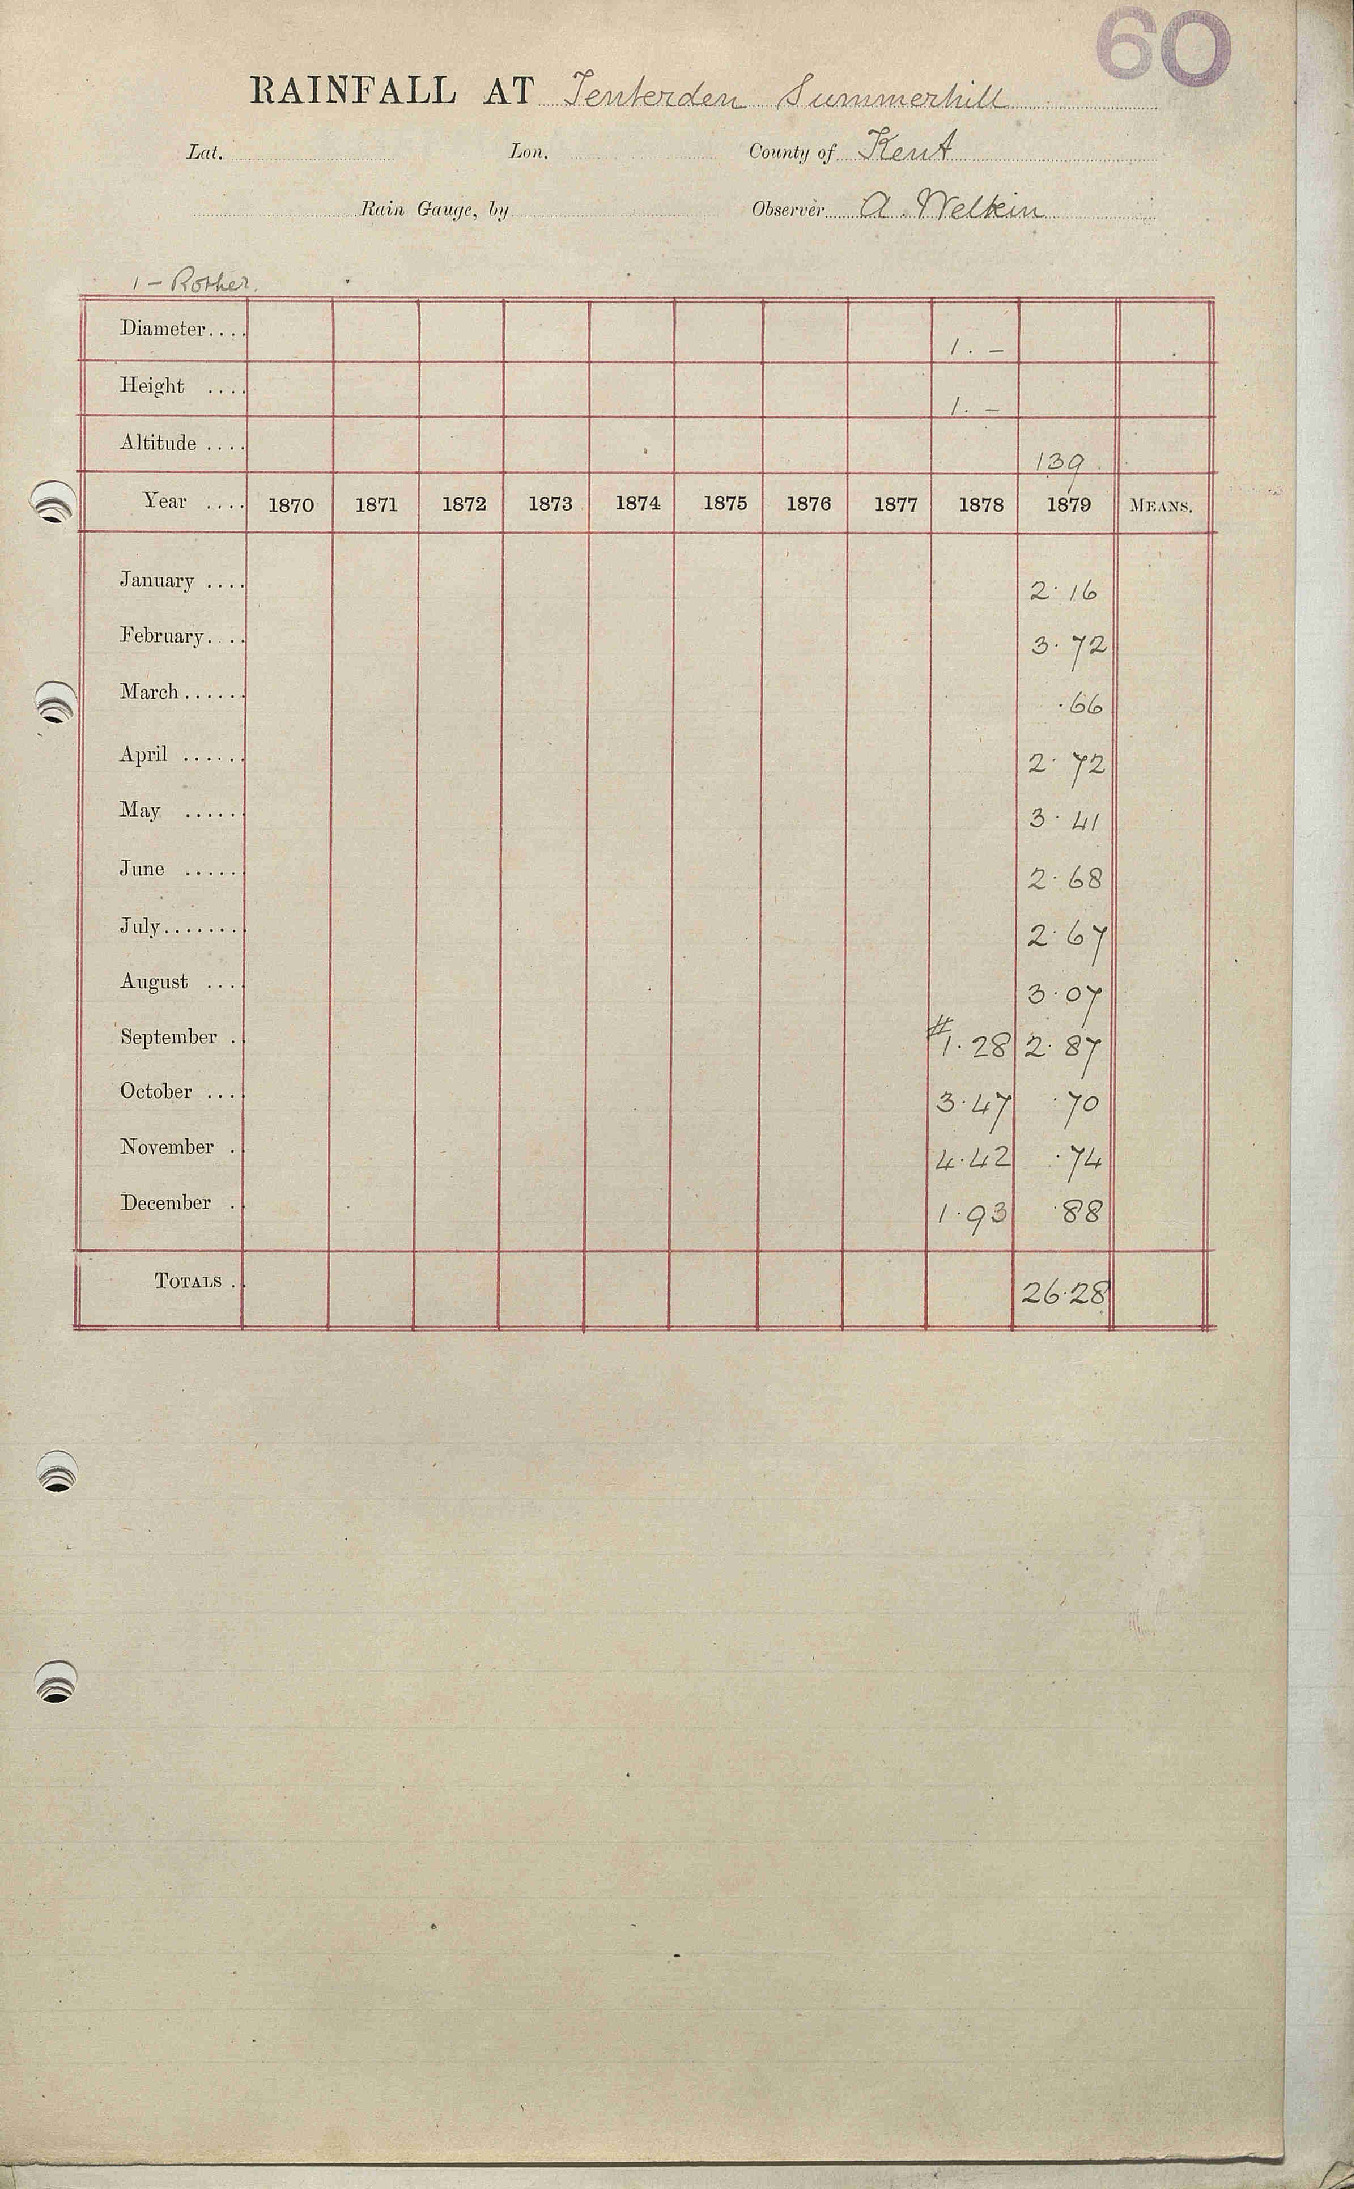 60
RAINFALL AT Tenterden Summerhill
Lat. Lon. County of Kent
Rain Gauge, by Observer A. Welkin
1 - Rother.
Diameter.... 1. -
Height .... 1. -
Altitude .... 139
Year .... 1870 1871 1872 1873 1874 1875 1876 1877 1878 1879 MEANS.
January .... 2.16
February.... 3.72
March...... .66
April ...... 2.72
May ..... 3.41
June ..... 2.68
July........ 2.67
August .... 3.07
September . #1.28 2.87
October .... 3.47 .70
November . 4.42 .74
December . 1.93 .88
TOTALS . 26.28